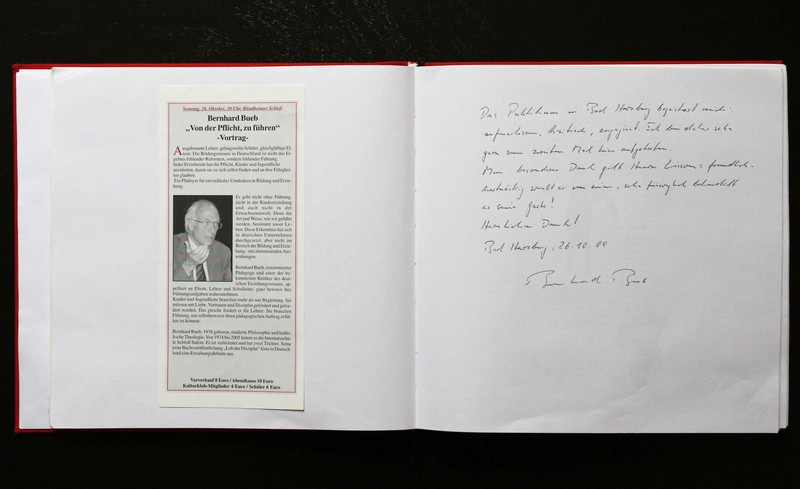 Sonntag, 26. Oktober, 20 Uhr, Bündheimer Schloß
Bernhard Bueb
„Von der Pflicht, zu führen“
-Vortrag-
Ausgebrannte Lehrer, gelangweilte Schüler, gleichgültige El-
tern. Die Bildungsmisere in Deutschland ist nicht das Er-
gebnis fehlender Reformen, sondern fehlender Führung.
Jeder Erziehende hat die Pflicht, Kinder und Jugendliche
anzuleiten, damit sie zu sich selbst finden und an ihre Fähigkei-
ten glauben.
Ein Plädoyer für ein radikales Umdenken in Bildung und Erzie-
hung.
Es geht nicht ohne Führung,
nicht in der Kindererziehung
und auch nicht in der
Erwachsenenwelt. Denn die
Art und Weise, wie wir geführt
werden, bestimmt unser Le-
ben. Diese Erkenntnis hat sich
in deutschen Unternehmen
durchgesetzt, aber nicht im
Bereich der Bildung und Erzie-
hung - mit alarmierenden Aus-
wirkungen.
Bernhard Bueb, renommierter
Pädagoge und einer der be-
kanntesten Kritiker des deut-
schen Erziehungswesens, ap-
pelliert an Eltern, Lehrer und Schulleiter, ganz bewusst ihre
Führungsaufgaben wahrzunehmen.
Kinder und Jugendliche brauchen mehr als nur Begleitung. Sie
müssen mit Liebe, Vertrauen und Disziplin gefördert und gefor-
dert werden. Das gleiche fordert er für Lehrer. Sie brauchen
Führung, um selbstbewusst ihren pädagogischen Auftrag erfül-
len zu können.
Bernhard Bueb, 1938 geboren, studierte Philosophie und katho-
lische Theologie. Von 1974 bis 2005 leitete er die Internatsschu-
le Schloß Salem. Er ist verheiratet und hat zwei Töchter. Seine
erste Buchveröffentlichung „Lob der Disziplin“ löste in Deutsch-
land eine Erziehungsdebatte aus.
Vorverkauf 8 Euro / Abendkasse 10 Euro
Kulturklub-Mitglieder 4 Euro / Schüler 6 Euro
Das Publikum in Bad Harzburg begeistert mich:
aufmerksam, kritisch, engagiert. Ich bin daher sehr
gern zum zweiten Mal hier aufgetreten.
Mein besonderer Dank gilt Herrn
als seine Gäste!
Herzlichen Dank!
Bad Harzburg, 26.10.08
Bernhard Bueb